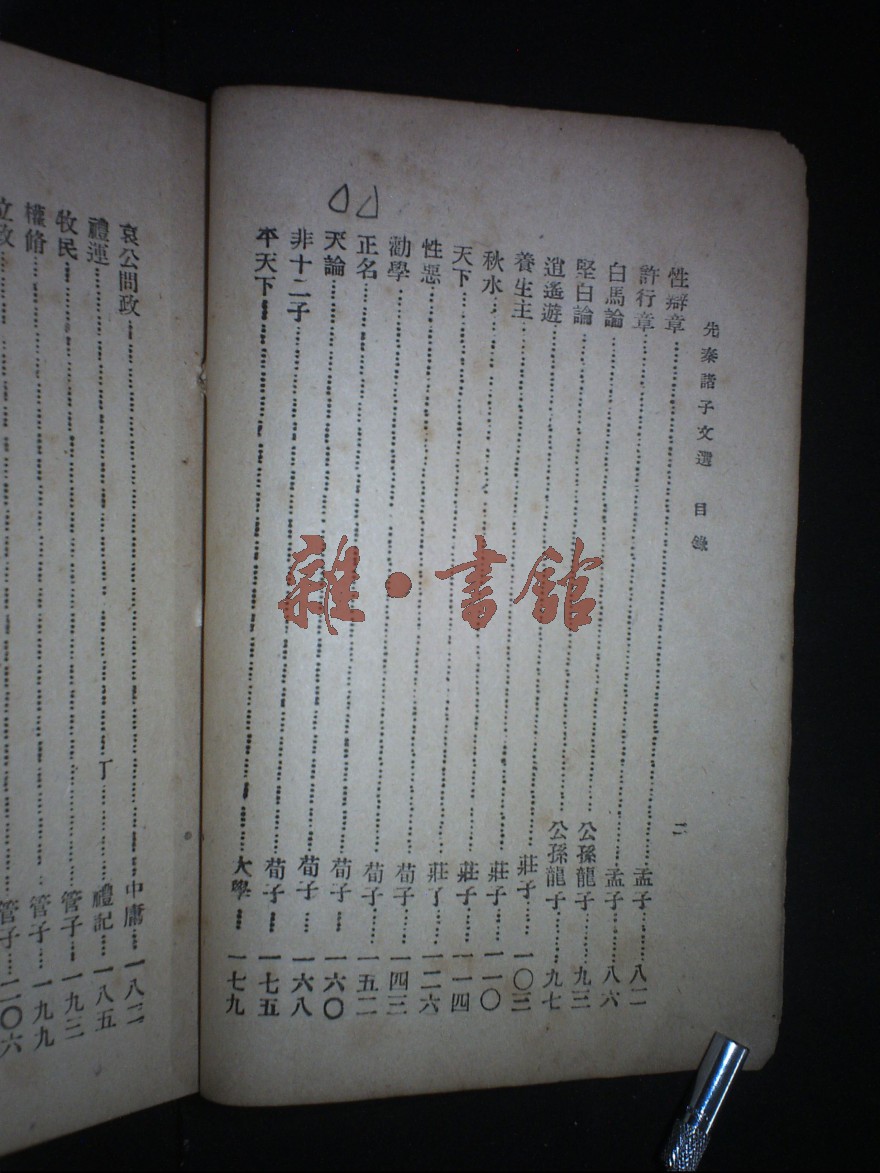 先秦諸子文選 目錄 二
性辯章……孟子……八二
許行章……孟子……八六
白馬論……公孫龍子……九三
堅白論……公孫龍子……九七
逍遙遊……莊子……一〇三
養生主……莊子……一一〇
秋水……莊子……一一四
天下……莊子……一二六
性惡……荀子……一四三
勸學……荀子……一五二
正名……荀子……一六〇
天論……荀子……一六八
非十二子……荀子……一七五
平天下……大學……一七九
哀公問政……中庸……一八二
禮運……禮記……一八五
牧民……管子……一九三
權脩……管子……一九九
立政……管子……二〇六
雜·書館